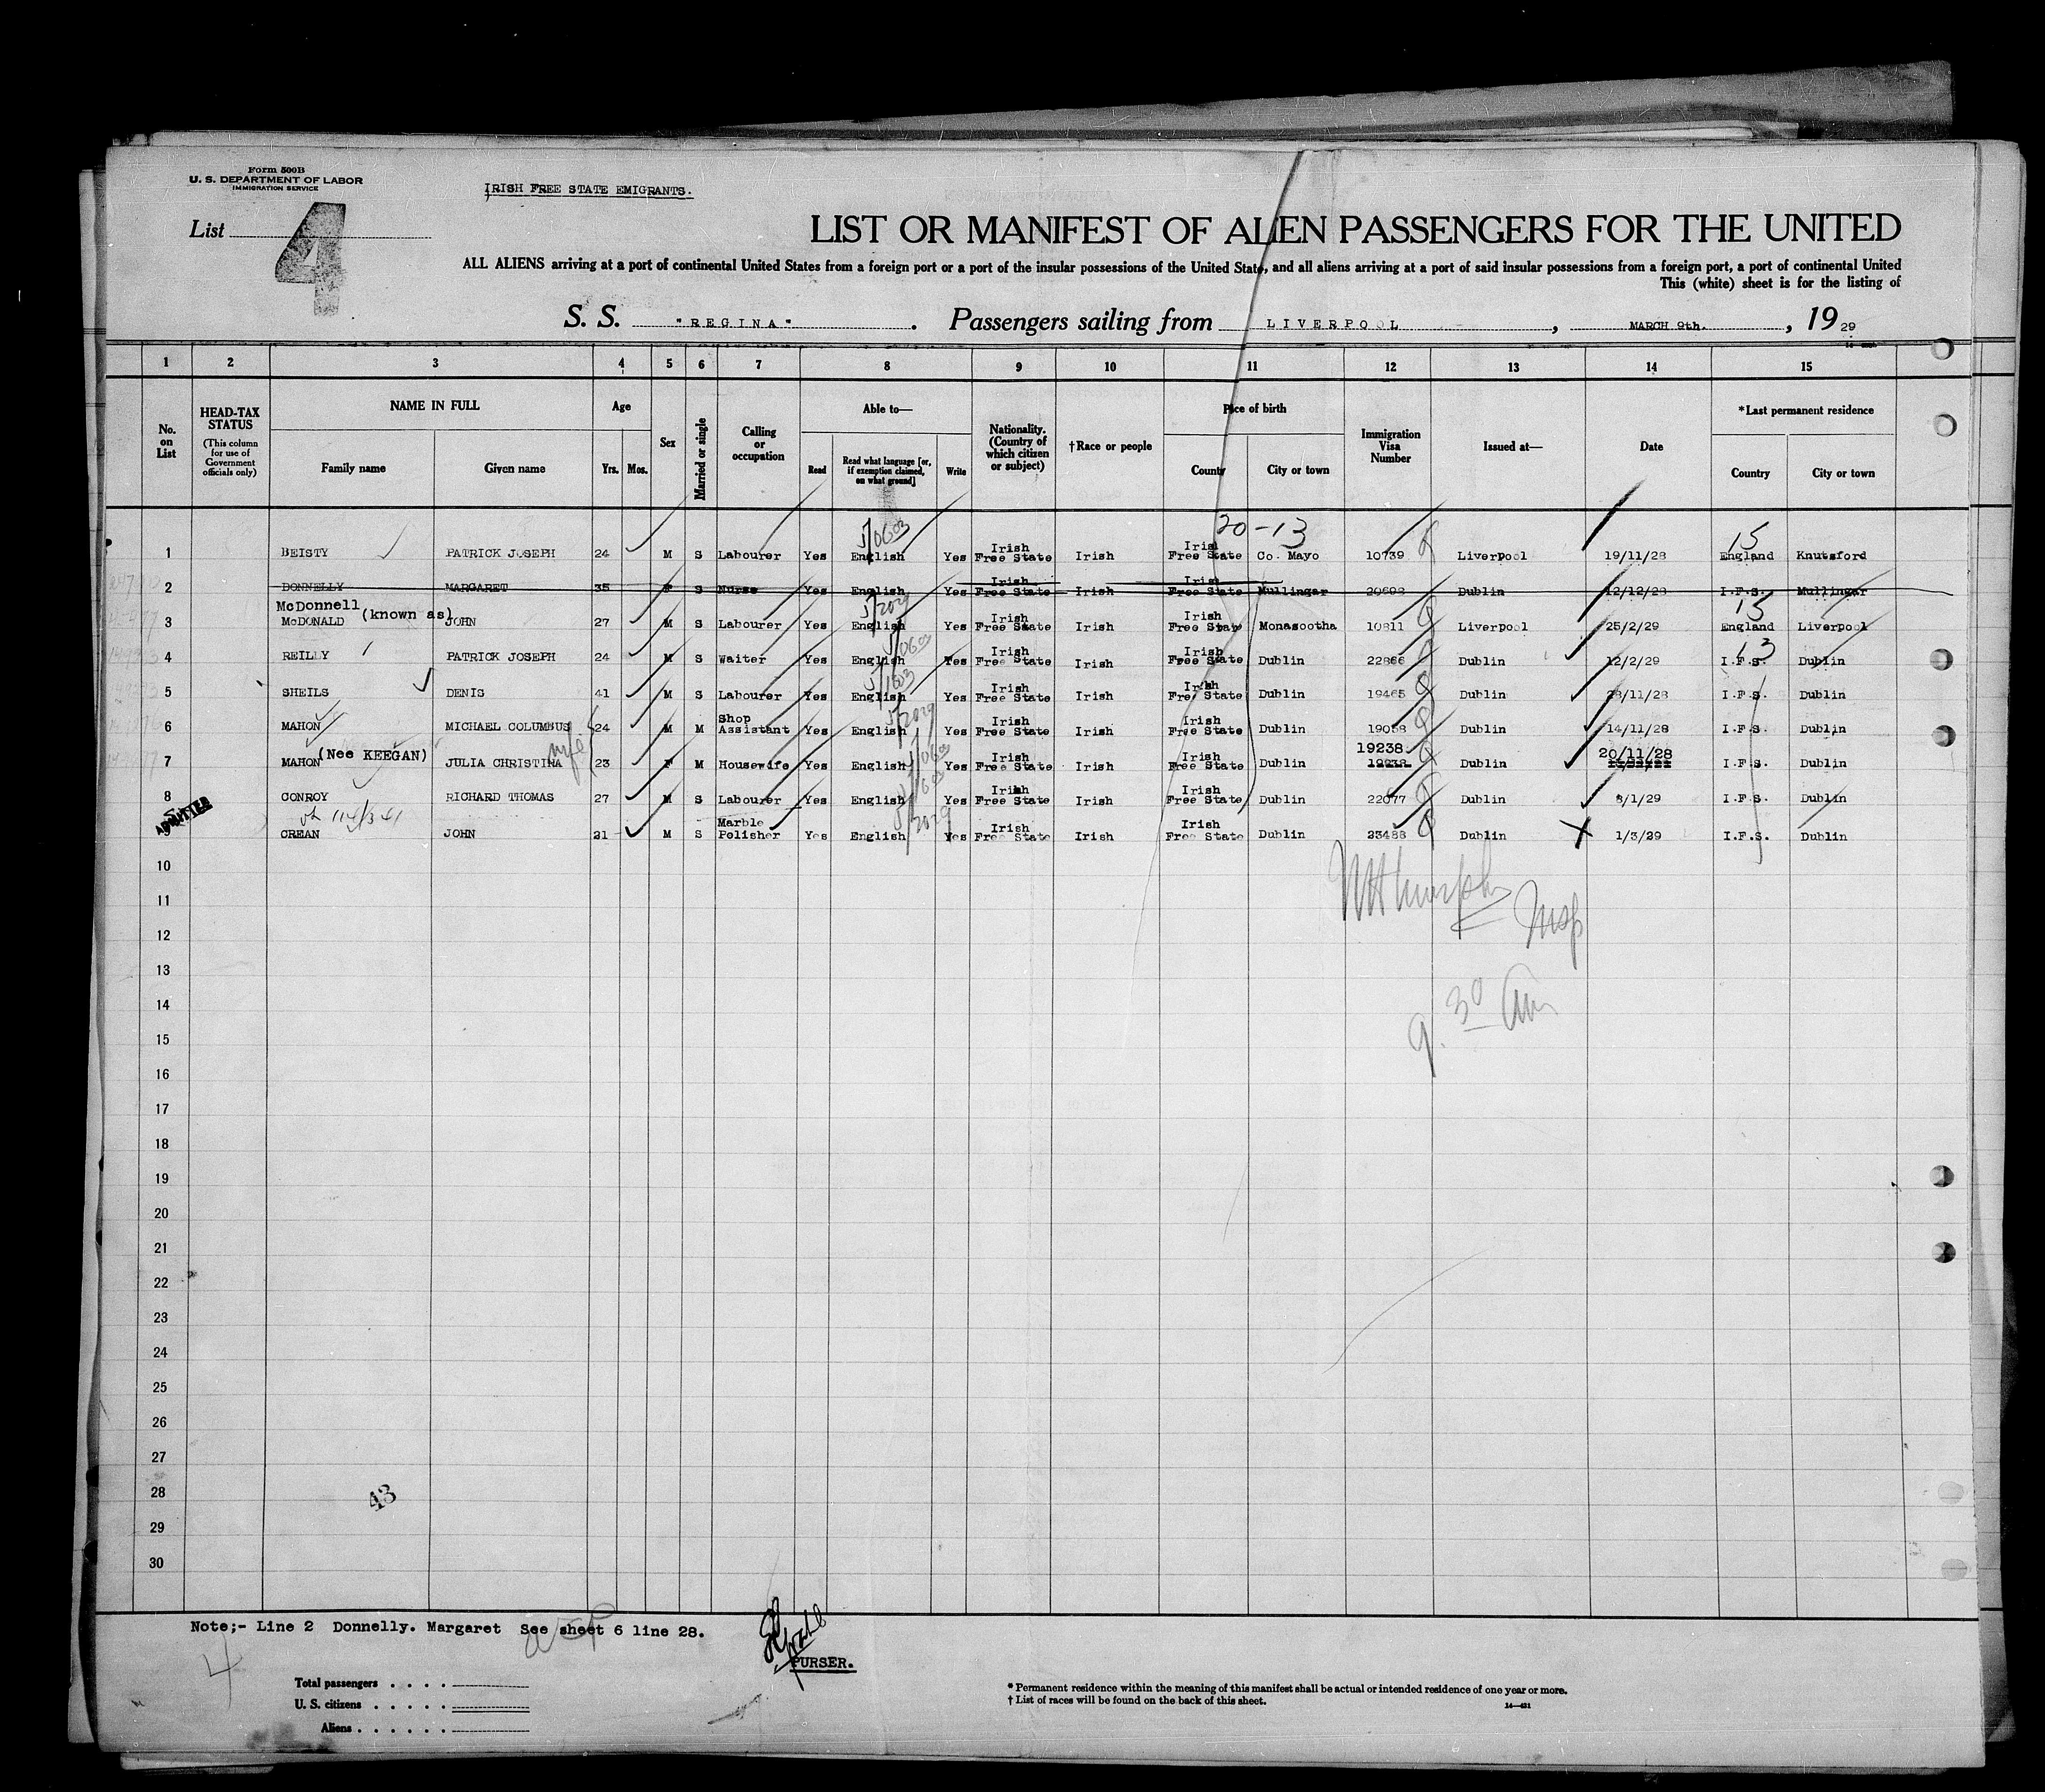 Form 500B
U. S. DEPARTMENT OF LABOR
IMMIGRATION SERVICE
IRISH FREE STATE EMIGRANTS.
List 4
LIST OR MANIFEST OF ALIEN PASSENGERS FOR THE UNITED
ALL ALIENS arriving at a port of continental United States from a foreign port or a port of the insular possessions of the United State, and all aliens arriving at a port of said insular possessions from a foreign port, a port of continental United
This (white) sheet is for the listing of
S. S. "REGINA" . Passengers sailing from LIVERPOOL , MARCH 9th. , 19 29
1 2 3 4 5 6 7 8 9 10 11 12 13 14 15
No. on List
HEAD-TAX STATUS
(This column for use of Government officials only)
NAME IN FULL
Family name Given name
Age
Yrs. Mos.
Sex
Married or single
Calling or occupation
Able to—
Read
Read what language [or, if exemption claimed, on what ground]
Write
Nationality. (Country of which citizen or subject)
†Race or people
Place of birth
County City or town
Immigration Visa Number
Issued at—
Date
*Last permanent residence
Country City or town
20-13 15
1 BEISTY PATRICK JOSEPH 24 M S Labourer Yes English Yes Irish Free State Irish Irish Free State Co. Mayo 10739 Liverpool 19/11/28 England Knutsford
2 DONNELLY MARGARET 35 F S Nurse Yes English Yes Irish Free State Irish Irish Free State Mullingar 20698 Dublin 12/12/28 I.F.S. Mullingar
McDonnell (known as) 15
3 McDONALD JOHN 27 M S Labourer Yes English Yes Irish Free State Irish Irish Free State Monasootha 10811 Liverpool 25/2/29 England Liverpool
13
4 REILLY PATRICK JOSEPH 24 M S Waiter Yes English Yes Irish Free State Irish Irish Free State Dublin 22866 Dublin 12/2/29 I.F.S. Dublin
5 SHEILS DENIS 41 M S Labourer Yes English Yes Irish Free State Irish Irish Free State Dublin 19465 Dublin 28/11/28 I.F.S. Dublin
6 MAHON MICHAEL COLUMBUS 24 M M Shop Assistant Yes English Yes Irish Free State Irish Irish Free State Dublin 19058 Dublin 14/11/28 I.F.S. Dublin
(Nee KEEGAN) wife 19238 20/11/28
7 MAHON JULIA CHRISTINA 23 F M Housewife Yes English Yes Irish Free State Irish Irish Free State Dublin Dublin I.F.S. Dublin
8 CONROY RICHARD THOMAS 27 M S Labourer Yes English Yes Irish Free State Irish Irish Free State Dublin 22077 Dublin 8/1/29 I.F.S. Dublin
ADMITTED
CREAN JOHN 21 M S Marble Polisher Yes English Yes Irish Free State Irish Irish Free State Dublin 23488 Dublin 1/3/29 I.F.S. Dublin
10
11
12
13
14
15
16
17
18
19
20
21
22
23
24
25
26
27
28
29
30
Insp
9.30 am
43
Note;- Line 2 Donnelly. Margaret See sheet 6 line 28.
4
PURSER.
Total passengers . . . .
U. S. citizens . . . . .
Aliens . . . . . .
* Permanent residence within the meaning of this manifest shall be actual or intended residence of one year or more.
† List of races will be found on the back of this sheet.
14—421